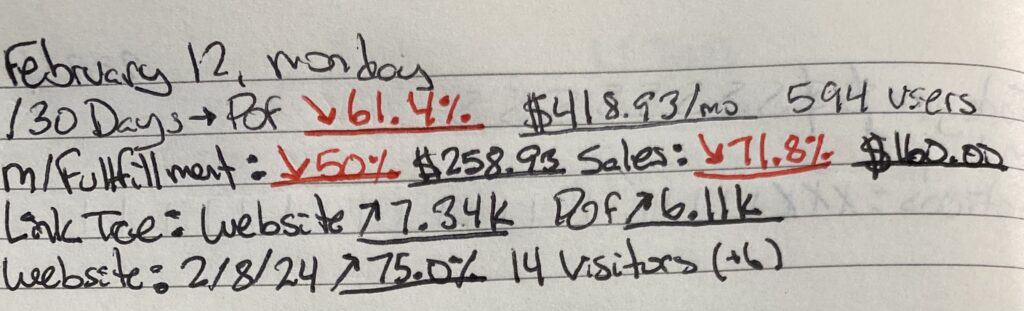 February 12, monday
/30 Days → Pof ↘61.4% $418.93/mo 594 users
m/Fullfillment: ↘50% $258.93 Sales: ↘71.8% $160.00
Link Tee: Website ↗7.34k Pof ↗6.11k
Website: 2/8/24 ↗75.0% 14 Visitors (+6)